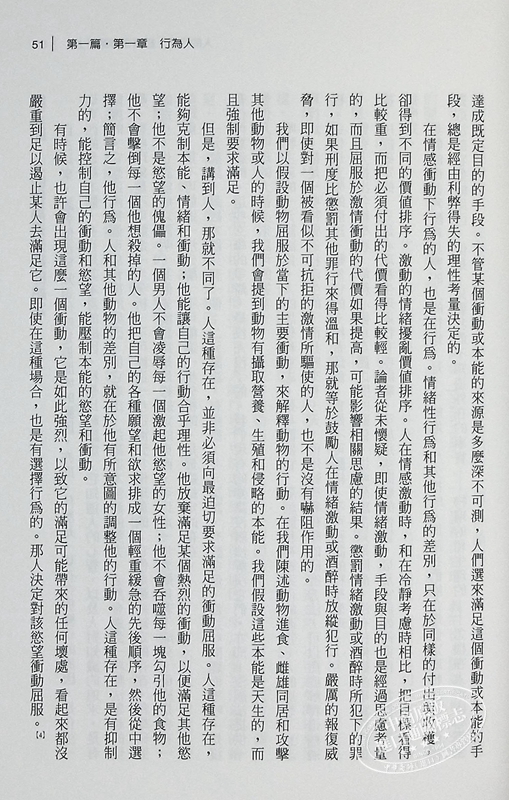 51 第一篇．第一章 行為人
達成既定目的的手段。不管某個衝動或本能的來源是多麼深不可測，人們選來滿足這個衝動或本能的手
段，總是經由利弊得失的理性考量決定的。
在情感衝動下行為的人，也是在行為。情緒性行為和其他行為的差別，只在於同樣的付出與收穫
卻得到不同的價值排序。激動的情緒擾亂價值排序。人在情感激動時，和在冷靜考慮時相比，把目標看得
比較重，而把必須付出的代價看得比較輕。論者從未懷疑，即使情緒激動，手段與目的也是經過思慮考量
的，而且屈服於激情衝動的代價如果提高，可能影響相關思慮的結果。懲罰情緒激動或酒醉時所犯下的罪
行，如果刑度比懲罰其他罪行來得溫和，那就等於鼓勵人在情緒激動或酒醉時放縱犯行。嚴厲的報復威
脅，即使對一個被看似不可抗拒的激情所驅使的人，也不是沒有嚇阻作用的。
我們以假設動物屈服於當下的主要衝動，來解釋動物的行動。在我們陳述動物進食、雌雄同居和攻擊
其他動物或人的時候，我們會提到動物有攝取營養、生殖和侵略的本能。我們假設這些本能是天生的，而
且強制要求滿足。
但是，講到人，那就不同了。人這種存在，並非必須向最迫切要求滿足的衝動屈服。人這種存在，
能夠克制本能、情緒和衝動；他能讓自己的行動合乎理性。他放棄滿足某個熱烈的衝動，以便滿足其他慾
望；他不是慾望的傀儡。一個男人不會凌辱每一個激起他慾望的女性；他不會吞噬每一塊勾引他的食物；
他不會擊倒每一個他想殺掉的人。他把自己的各種願望和欲求排成一個輕重緩急的先後順序，然後從中選
擇；簡言之，他行為。人和其他動物的差別，就在於他有所意圖的調整他的行動。人這種存在，是有抑制
力的，能控制自己的衝動和慾望，能壓制本能的慾望和衝動。
有時候，也許會出現這麼一個衝動，它是如此強烈，以致它的滿足可能帶來的任何壞處，看起來都沒
嚴重到足以遏止某人去滿足它。即使在這種場合，也是有選擇行為的。那人決定對該慾望衝動屈服。[4]